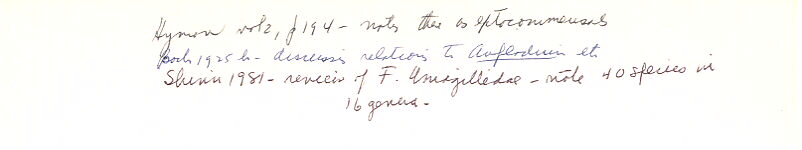 Hyman vol 2, p 194 - notes these as ectocommensals
Bock 1925 b - discusses relations to etc
Shinn 1981 - review of F. Umagillidae - note 40 species in
16 genera -